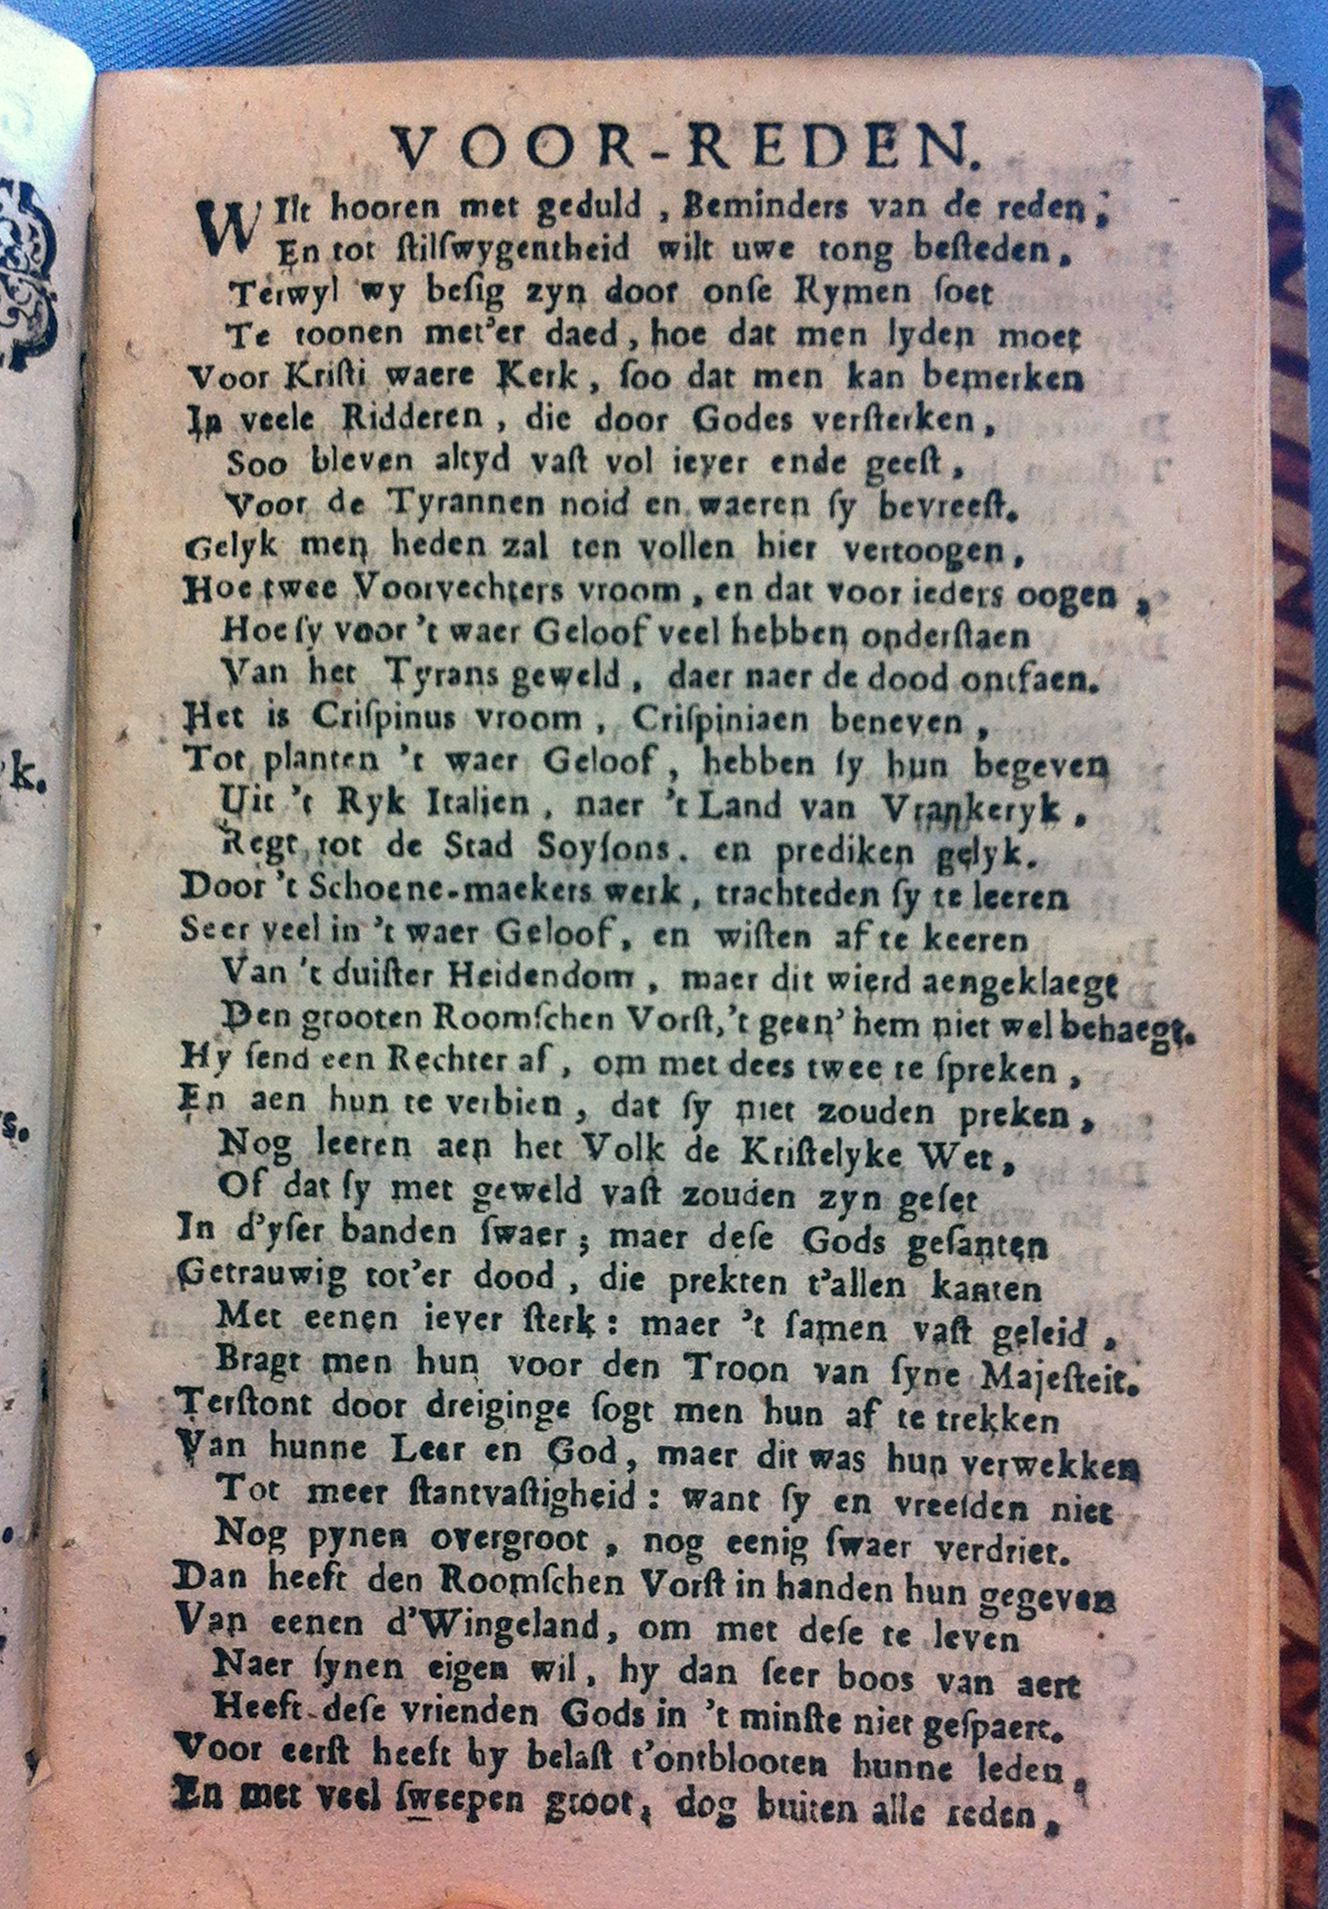 VOOR-REDEN.
WIlt hooren met geduld, Beminders van de reden;
En tot ſtilſwygentheid wilt uwe tong beſteden,
Terwyl wy beſig zyn door onſe Rymen ſoet
Te toonen met'er daed, hoe dat men lyden moet
Voor Kriſti waere Kerk, ſoo dat men kan bemerken
In veele Ridderen, die door Godes verſterken,
Soo bleven altyd vaſt vol iever ende geeſt,
Voor de Tyrannen noid en waeren ſy bevreeſt.
Gelyk men heden zal ten vollen hier vertoogen,
Hoe twee Voorvechters vroom, en dat voor ieders oogen,
Hoe ſy voor 't waer Geloof veel hebben onderſtaen
Van het Tyrans geweld, daer naer de dood ontfaen.
Het is Criſpinus vroom, Criſpiniaen beneven,
Tot planten 't waer Geloof, hebben ſy hun begeven
Uit 't Ryk Italien, naer 't Land van Vrankeryk,
Regt tot de Stad Soyſons. en prediken gelyk.
Door 't Schoene-maekers werk, trachteden ſy te leeren
Seer veel in 't waer Geloof, en wiſten af te keeren
Van 't duiſter Heidendom, maer dit wierd aengeklaegt
Den grooten Roomſchen Vorſt, 't geen' hem niet wel behaegt.
Hy ſend een Rechter af, om met dees twee te ſpreken,
En aen hun te verbien, dat ſy niet zouden preken,
Nog leeren aen het Volk de Kriſtelyke Wet,
Of dat ſy met geweld vaſt zouden zyn geſet
In d'yſer banden ſwaer; maer deſe Gods geſanten
Getrauwig tot'er dood, die prekten t'allen kanten
Met eenen iever ſterk: maer 't ſamen vaſt geleid,
Bragt men hun voor den Troon van ſyne Majeſteit.
Terſtont door dreiginge ſogt men hun af te trekken
Van hunne Leer en God, maer dit was hun verwekken
Tot meer ſtantvaſtigheid: want ſy en vreeſden niet
Nog pynen overgroot, nog eenig ſwaer verdriet.
Dan heeft den Roomſchen Vorſt in handen hun gegeven
Van eenen d'Wingeland, om met deſe te leven
Naer ſynen eigen wil, hy dan ſeer boos van aert
Heeft deſe vrienden Gods in 't minſte niet geſpaert.
Voor eerſt heeft hy belaſt t'ontblooten hunne leden,
En met veel ſweepen groot, dog buiten alle reden,
k.
s.